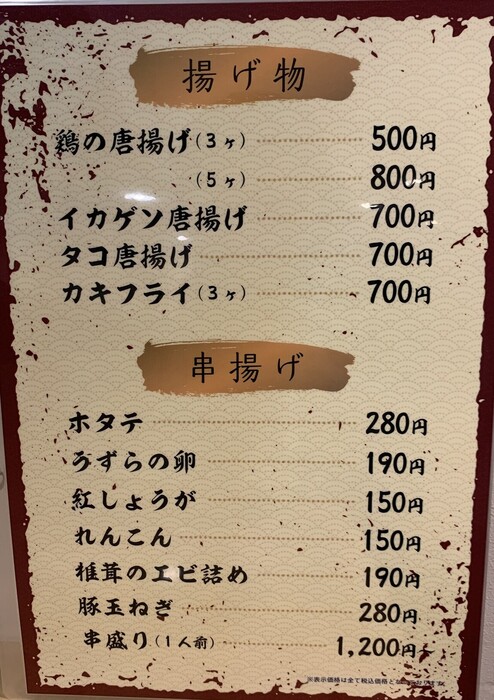 揚げ物
鶏の唐揚げ(3ヶ) 500円
(5ヶ) 800円
イカゲソ唐揚げ 700円
タコ唐揚げ 700円
カキフライ(3ヶ) 700円
串揚げ
ホタテ 280円
うずらの卵 190円
紅しょうが 150円
れんこん 150円
椎茸のエビ詰め 190円
豚玉ねぎ 280円
串盛り(1人前) 1,200円
※表示価格は全て税込価格となっております